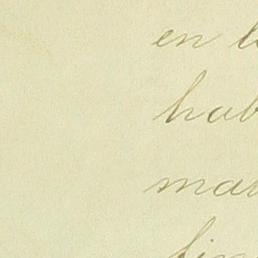 en
hab
mar
fin